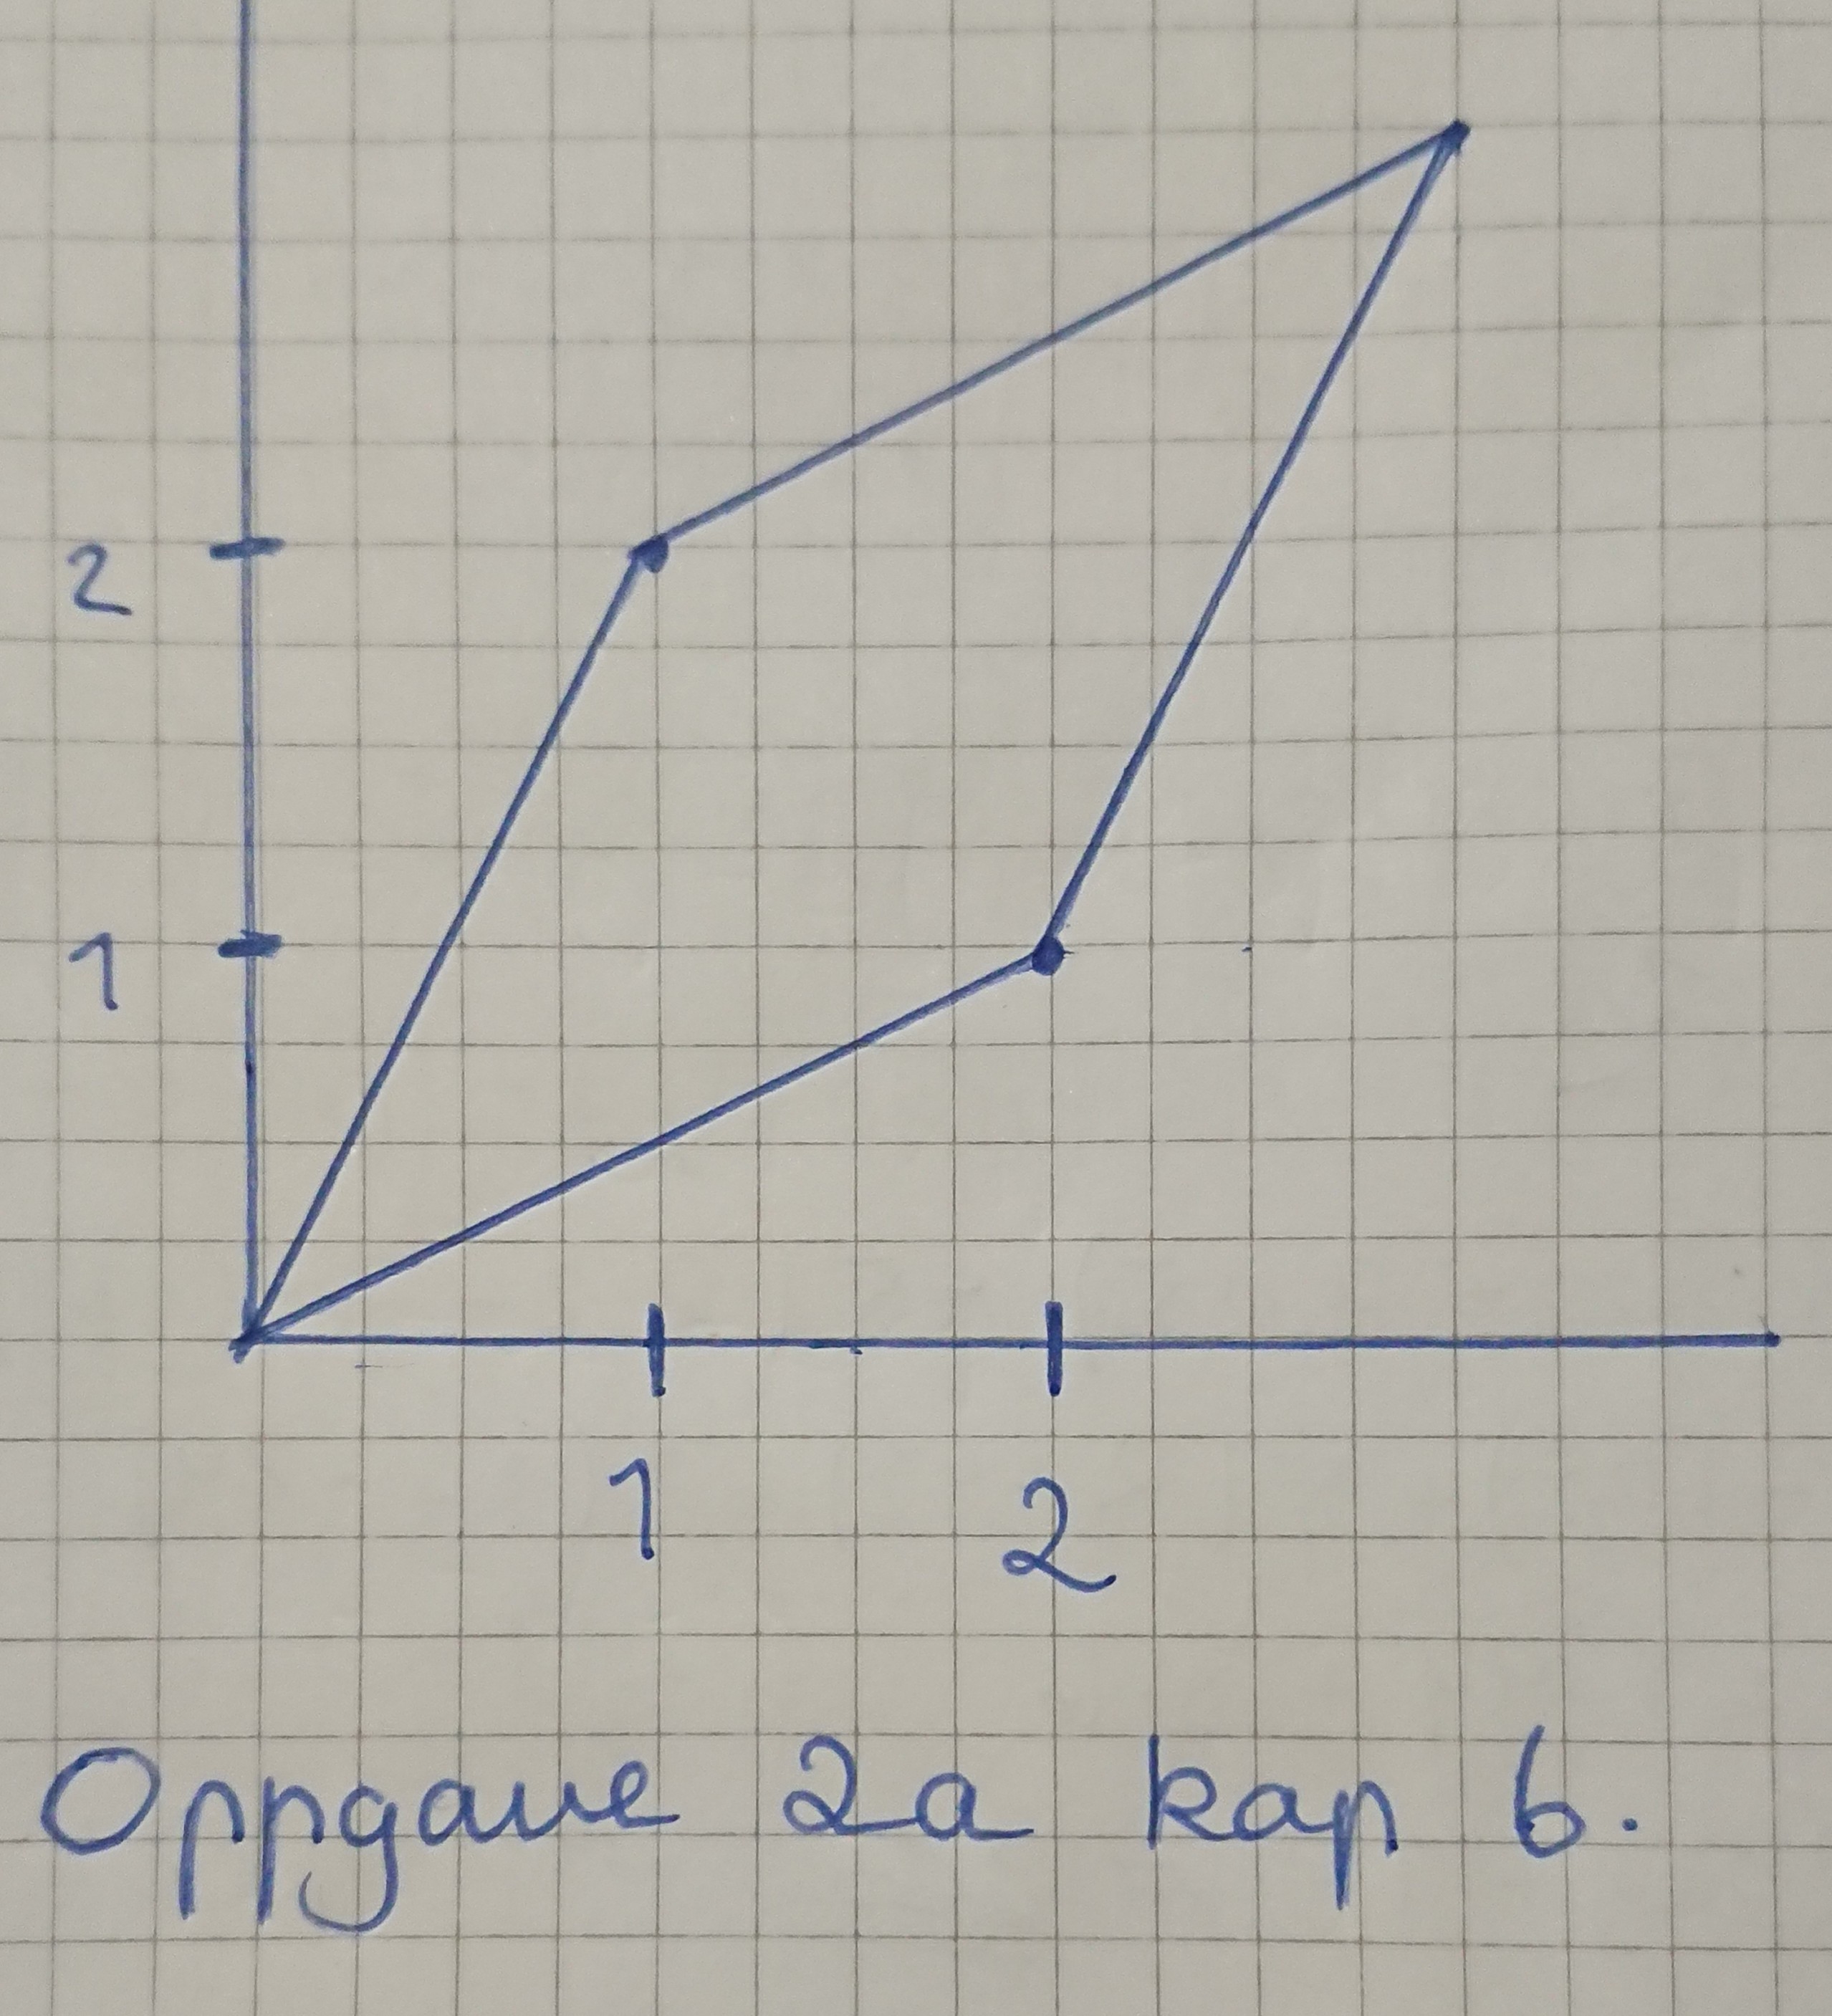 2
1
1 2
Oppgave 2a kap 6.